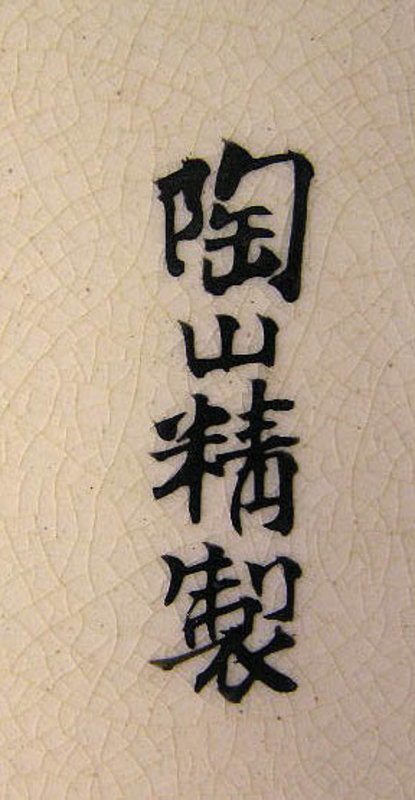 陶山精製